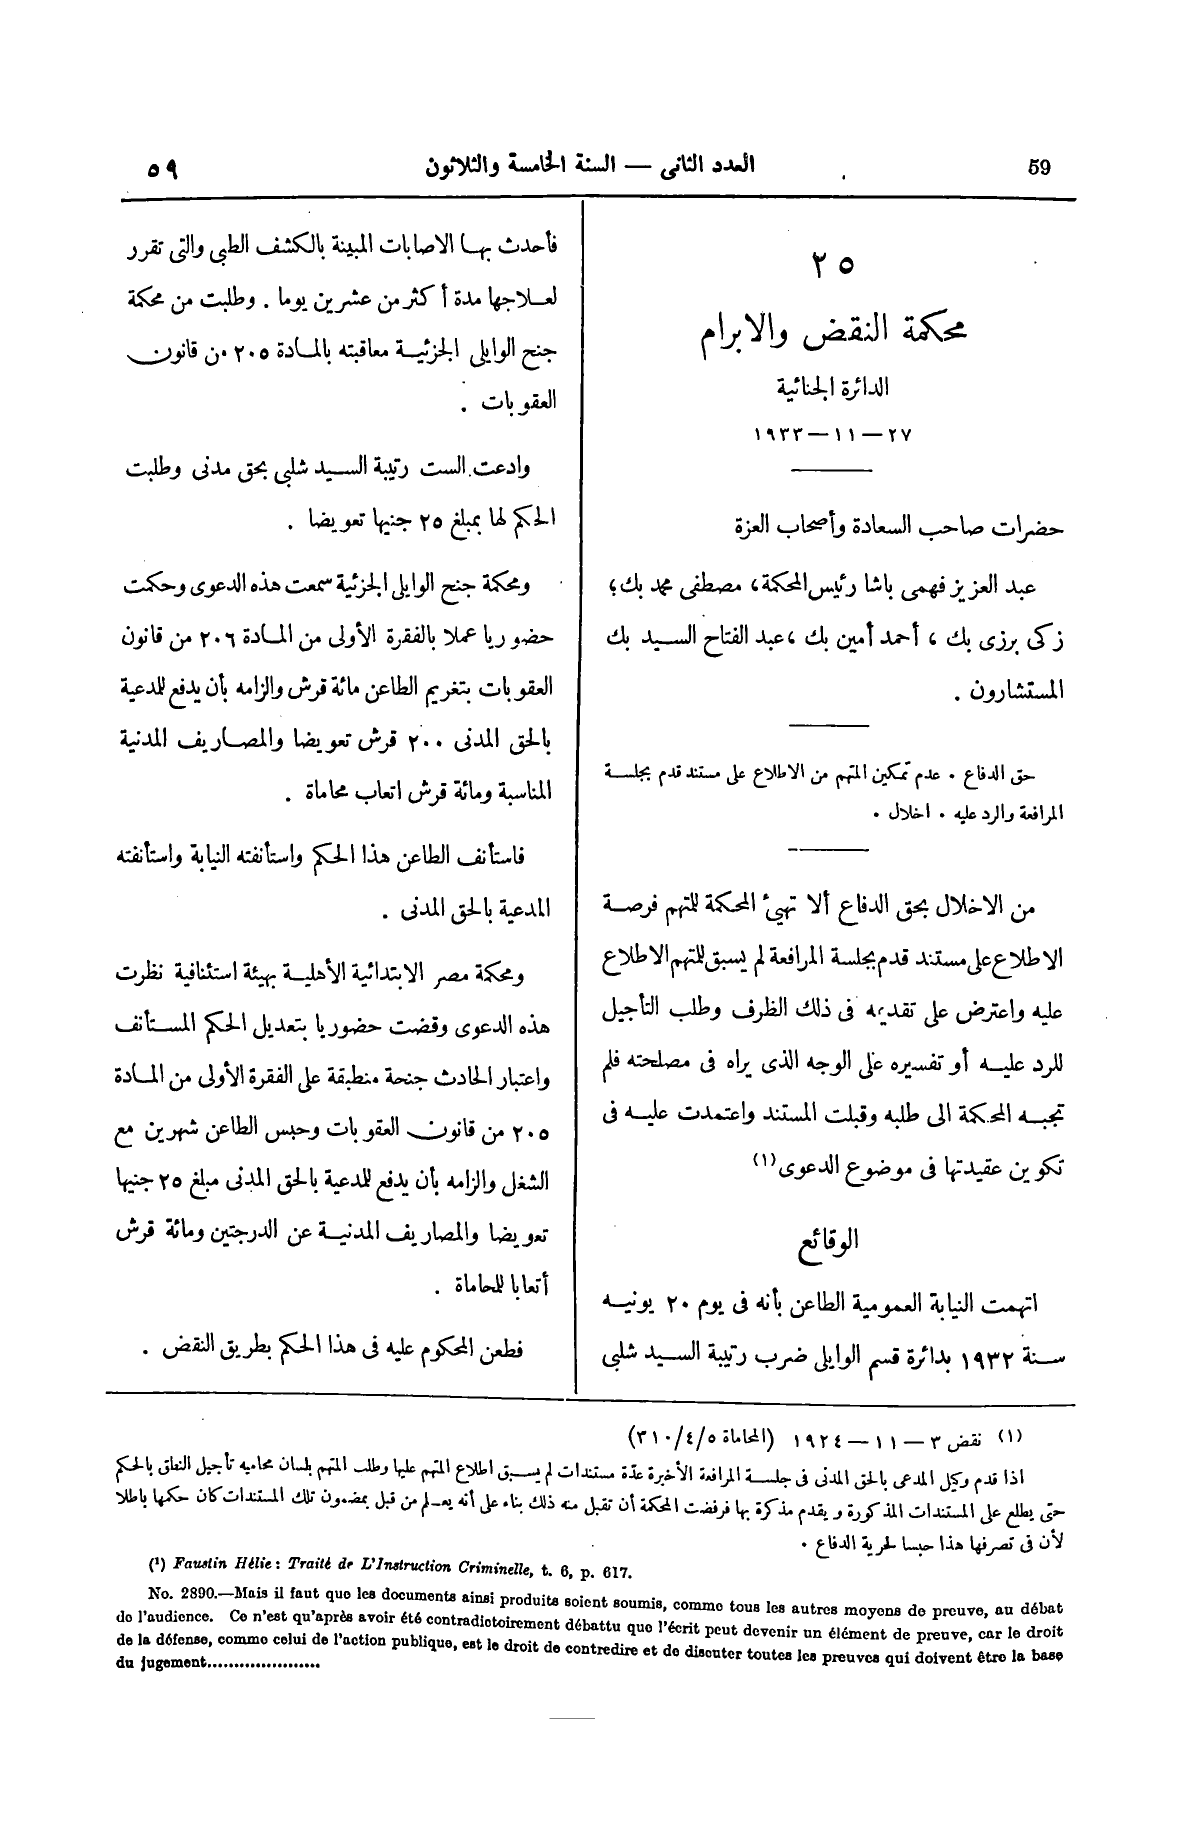 59
العدد الثانى — السنة الخامسة والثلاثون
٥٩
٢٥
محكمة النقض والابرام
الدائرة الجنائية
٢٧ — ١١ — ١٩٣٣
حضرات صاحب السعادة وأصحاب العزة
عبد العزيز فهمى باشا رئيس المحكمة، مصطفى محمد بك،
زكى برزى بك ، أحمد أمين بك ، عبد الفتاح السيد بك
المستشارون .
حق الدفاع . عدم تمكين المتهم من الاطلاع على مستند قدم بجلسة
المرافعة والرد عليه . اخلال .
من الاخلال بحق الدفاع ألا تهيئ المحكمة للمتهم فرصة
الاطلاع على مستند قدم بجلسة المرافعة لم يسبق للمتهم الاطلاع
عليه واعترض على تقديمه فى ذلك الظرف وطلب التأجيل
للرد عليه أو تفسيره على الوجه الذى يراه فى مصلحته فلم
تجبه المحكمة الى طلبه وقبلت المستند واعتمدت عليه فى
تكوين عقيدتها فى موضوع الدعوى (١)
الوقائع
اتهمت النيابة العمومية الطاعن بأنه فى يوم ٢٠ يونيه
سنة ١٩٣٢ بدائرة قسم الوايلى ضرب رتيبة السيد شلبى
فأحدث بها الاصابات المبينة بالكشف الطبى والتى تقرر
لعلاجها مدة أكثر من عشرين يوما . وطلبت من محكمة
جنح الوايلى الجزئية معاقبته بالمادة ٢٠٥ من قانون
العقوبات .
وادعت الست رتيبة السيد شلبى بحق مدنى وطلبت
الحكم لها بمبلغ ٢٥ جنيها تعويضا .
ومحكمة جنح الوايلى الجزئية سمعت هذه الدعوى وحكمت
حضوريا عملا بالفقرة الأولى من المادة ٢٠٦ من قانون
العقوبات بتغريم الطاعن مائة قرش والزامه بأن يدفع للمدعية
بالحق المدنى ٢٠٠ قرش تعويضا والمصاريف المدنية
المناسبة ومائة قرش اتعاب محاماة .
فاستأنف الطاعن هذا الحكم واستأنفته النيابة واستأنفته
المدعية بالحق المدنى .
ومحكمة مصر الابتدائية الأهلية بهيئة استئنافية نظرت
هذه الدعوى وقضت حضوريا بتعديل الحكم المستأنف
واعتبار الحادث جنحة منطبقة على الفقرة الأولى من المادة
٢٠٥ من قانون العقوبات وحبس الطاعن شهرين مع
الشغل والزامه بأن يدفع للمدعية بالحق المدنى مبلغ ٢٥ جنيها
تعويضا والمصاريف المدنية عن الدرجتين ومائة قرش
أتعابا للمحاماة .
فطعن المحكوم عليه فى هذا الحكم بطريق النقض .
(١) نقض ٣ — ١١ — ١٩٢٤ (المحاماة ٣١٠/٤/٥)
اذا قدم وكيل المدعى بالحق المدنى فى جلسة المرافعة الأخيرة عدّة مستندات لم يسبق اطلاع المتهم عليها وطلب المتهم بلسان محاميه تأجيل النطق بالحكم
حتى يطلع على المستندات المذكورة ويقدم مذكرة بها فرفضت المحكمة أن تقبل منه ذلك بناء على أنه يعلم من قبل بمضمون تلك المستندات كان حكمها باطلا
لأن فى تصرفها هذا حبسا لحرية الدفاع .
(¹) Faustin Hélie : Traité de L'Instruction Criminelle, t. 6, p. 617.
No. 2890.—Mais il faut que les documents ainsi produits soient soumis, comme tous les autres moyens de preuve, au débat
de l'audience. Ce n'est qu'après avoir été contradictoirement débattu que l'écrit peut devenir un élément de preuve, car le droit
de la défense, comme celui de l'action publique, est le droit de contredire et de discuter toutes les preuves qui doivent être la base
du jugement.....................